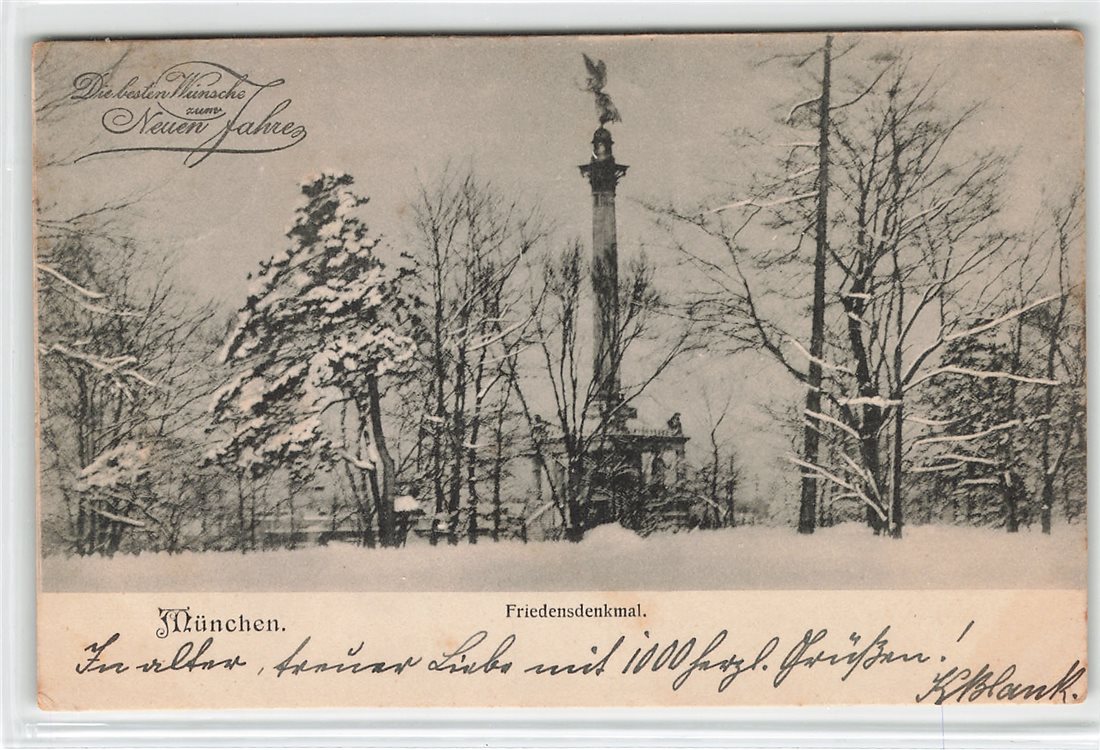 Die besten Wünsche
zum
Neuen Jahre
München.
Friedensdenkmal.
In alter, treuer Liebe mit 1000 herzl. Grüßen!
KBlank.